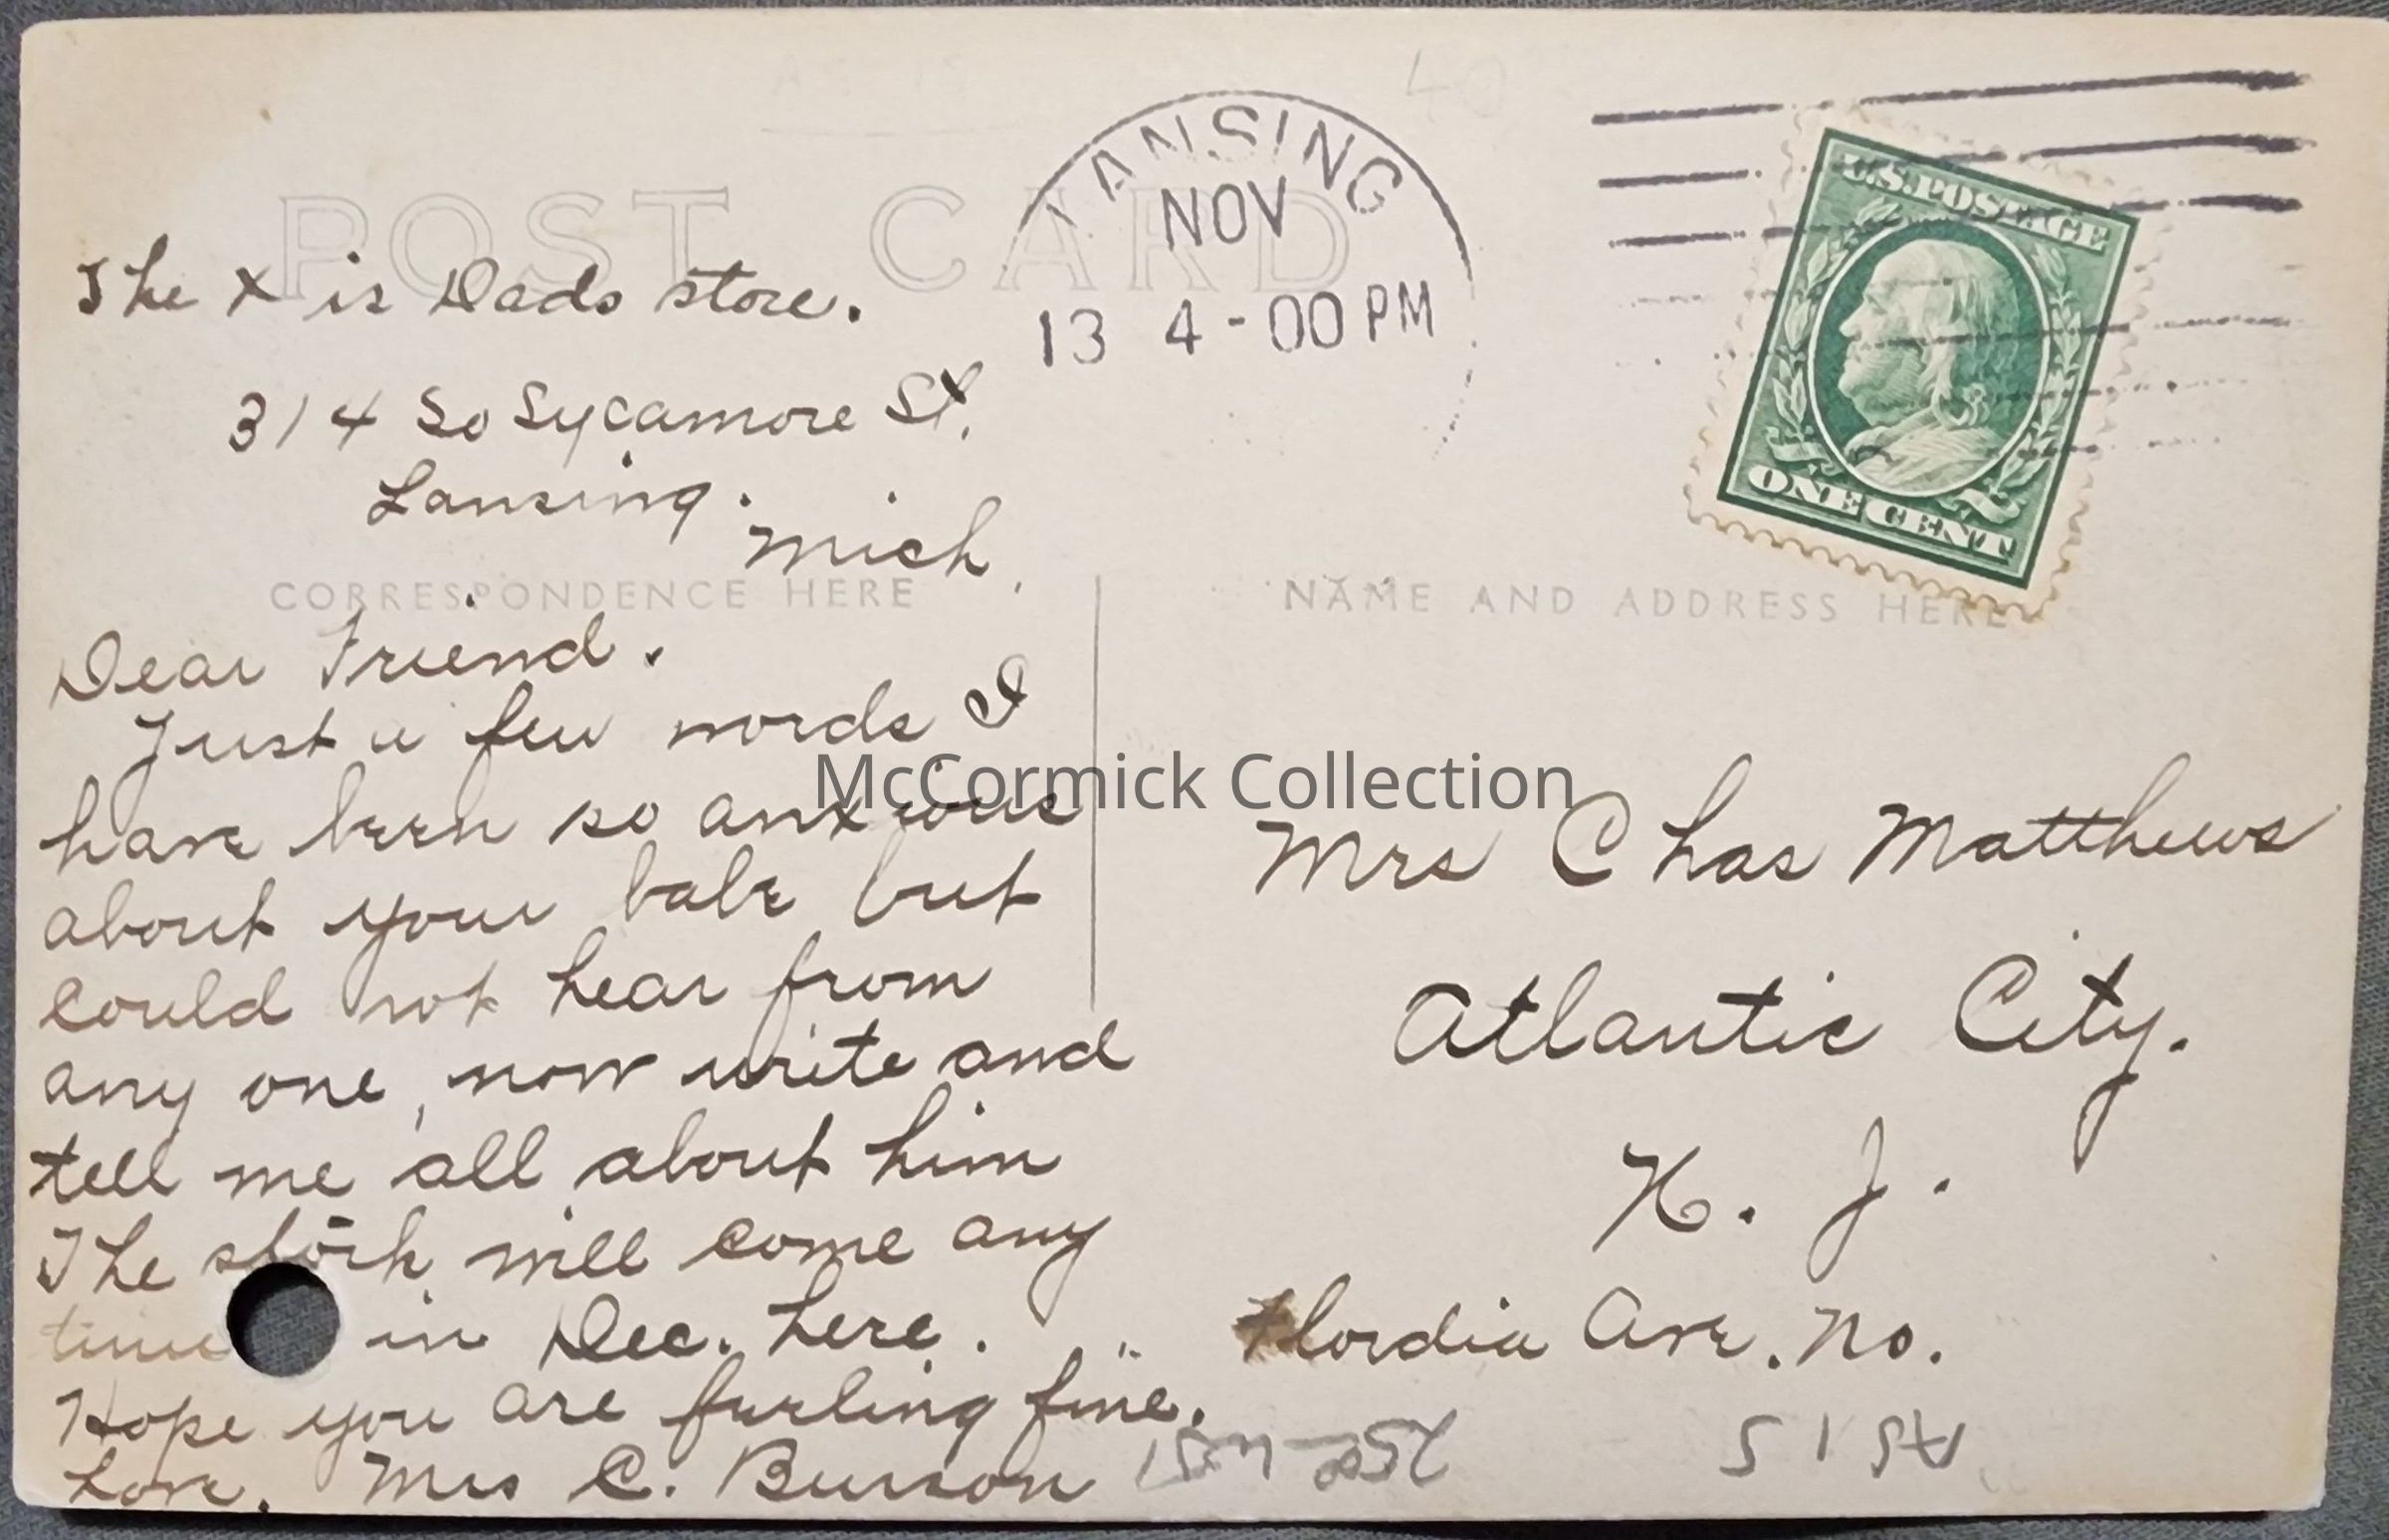 POST CARD
LANSING
NOV
13 4-00 PM
U.S. POSTAGE
ONE CENT
The X is Dads store.
314 So Sycamore St.
Lansing.
Mich.
CORRESPONDENCE HERE
NAME AND ADDRESS HERE
Dear Friend.
Just a few words I
have been so anxious
about your babe but
could not hear from
any one, now write and
tell me all about him
The stork will come any
time in Dec. here.
Hope you are feeling fine.
Love. Mrs C. Burson
McCormick Collection
Mrs Chas Matthews
Atlantic City.
N. J.
Flordia Ave. No.